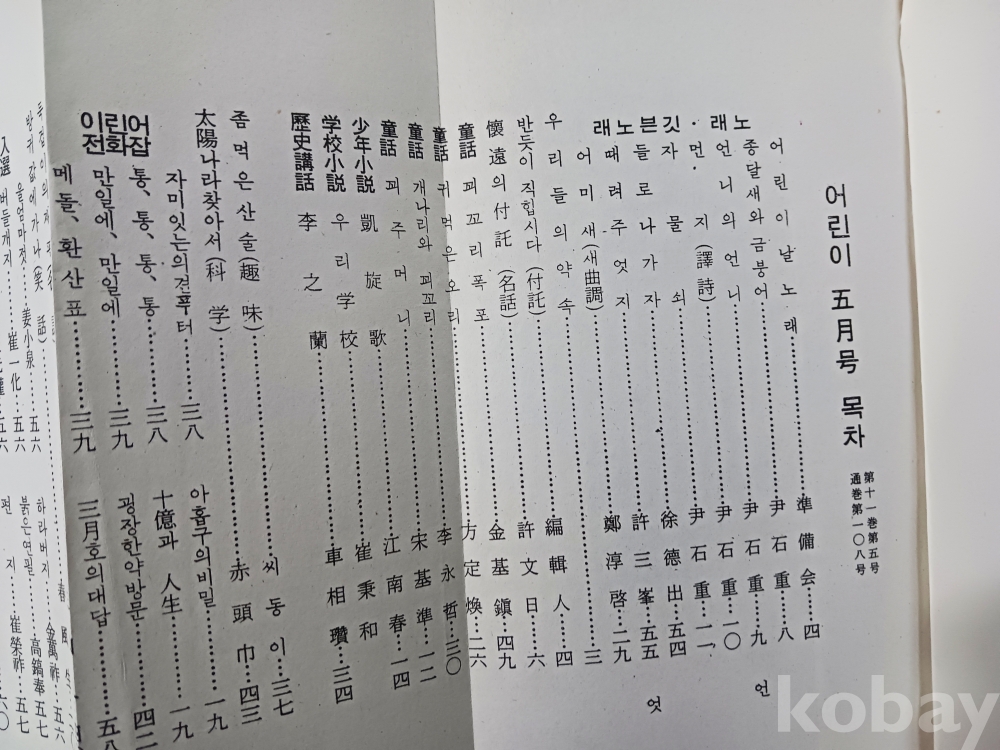 어린이 五月号 목차
第十一巻第五号
通巻第一〇八号
어린이날노래………準備会…四
노래 종달새와금붕어………尹石重…八
언니의언니………尹石重…九
·먼·지(譯詩)………尹石重…一〇
깃 자물쇠………尹石重…一一
븐 들로나가자………徐德出…五四
노 때려주엇지………許三峯…五五
래 어미새(새曲調)………鄭淳啓…二九
우리들의약속………三
반듯이직힙시다(付託)………編輯人…四
懷遠의付託(名話)………許文日…六
童話 꾀꼬리폭포………金基鎭…四九
童話 귀먹은오리………方定煥…二六
童話 개나리와꾀꼬리………李永哲…三〇
童話 꾀주머니………宋基準…一二
少年小説 凱旋歌………江南春…一四
学校小説 우리学校………崔秉和
歷史講話 李之蘭………車相瓚…三四
좀먹은산술(趣味)………씨동이…三七
太陽나라찾아서(科学)………赤頭巾…四三
어린이잡화전
자미잇는의견푸터……三八
아홉구의비밀……一九
통, 통, 통, 통……三八
十億과 人生……一九
만일에, 만일에……三九
굉장한약방문……四二
메돌, 환산표……三九
三月호의대답……五八
姜小泉……五六
하라버지
金萬祚…五六
入選 버들개지……崔一化…五六
붉은연필……高鎬奉 五七
편지……崔榮祚…五七
六〇
언
엇
kobay